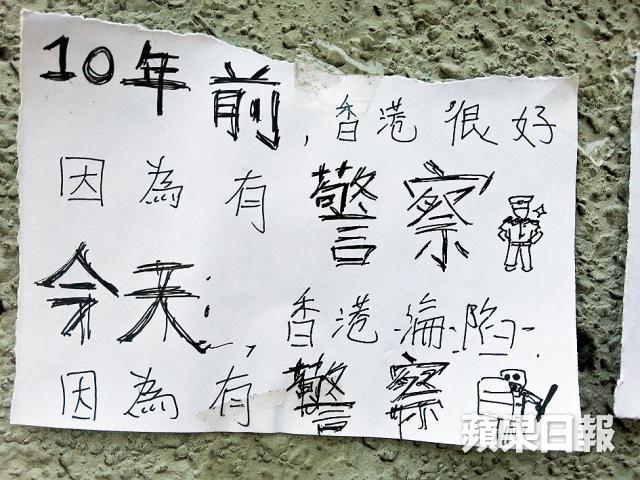 10年前，香港很好
因為有警察
今天，香港淪陷
因為有警察
蘋果日報